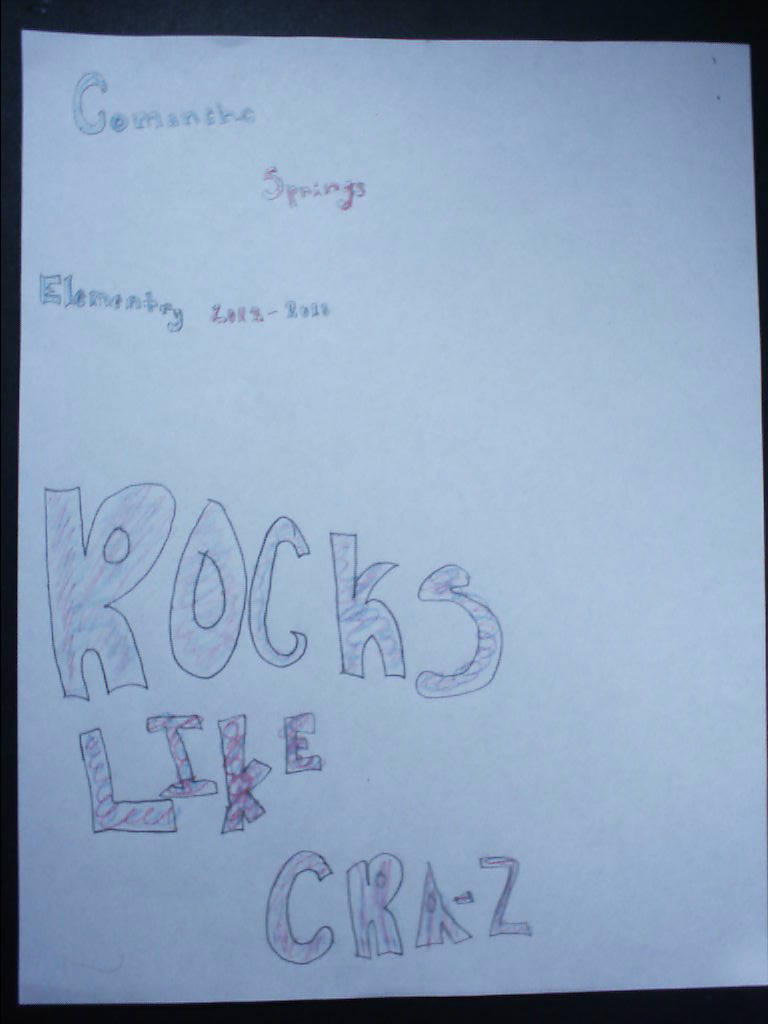 Comanche
Springs
Elementry 2012-2013
ROCKS
LIKE
CRA-Z